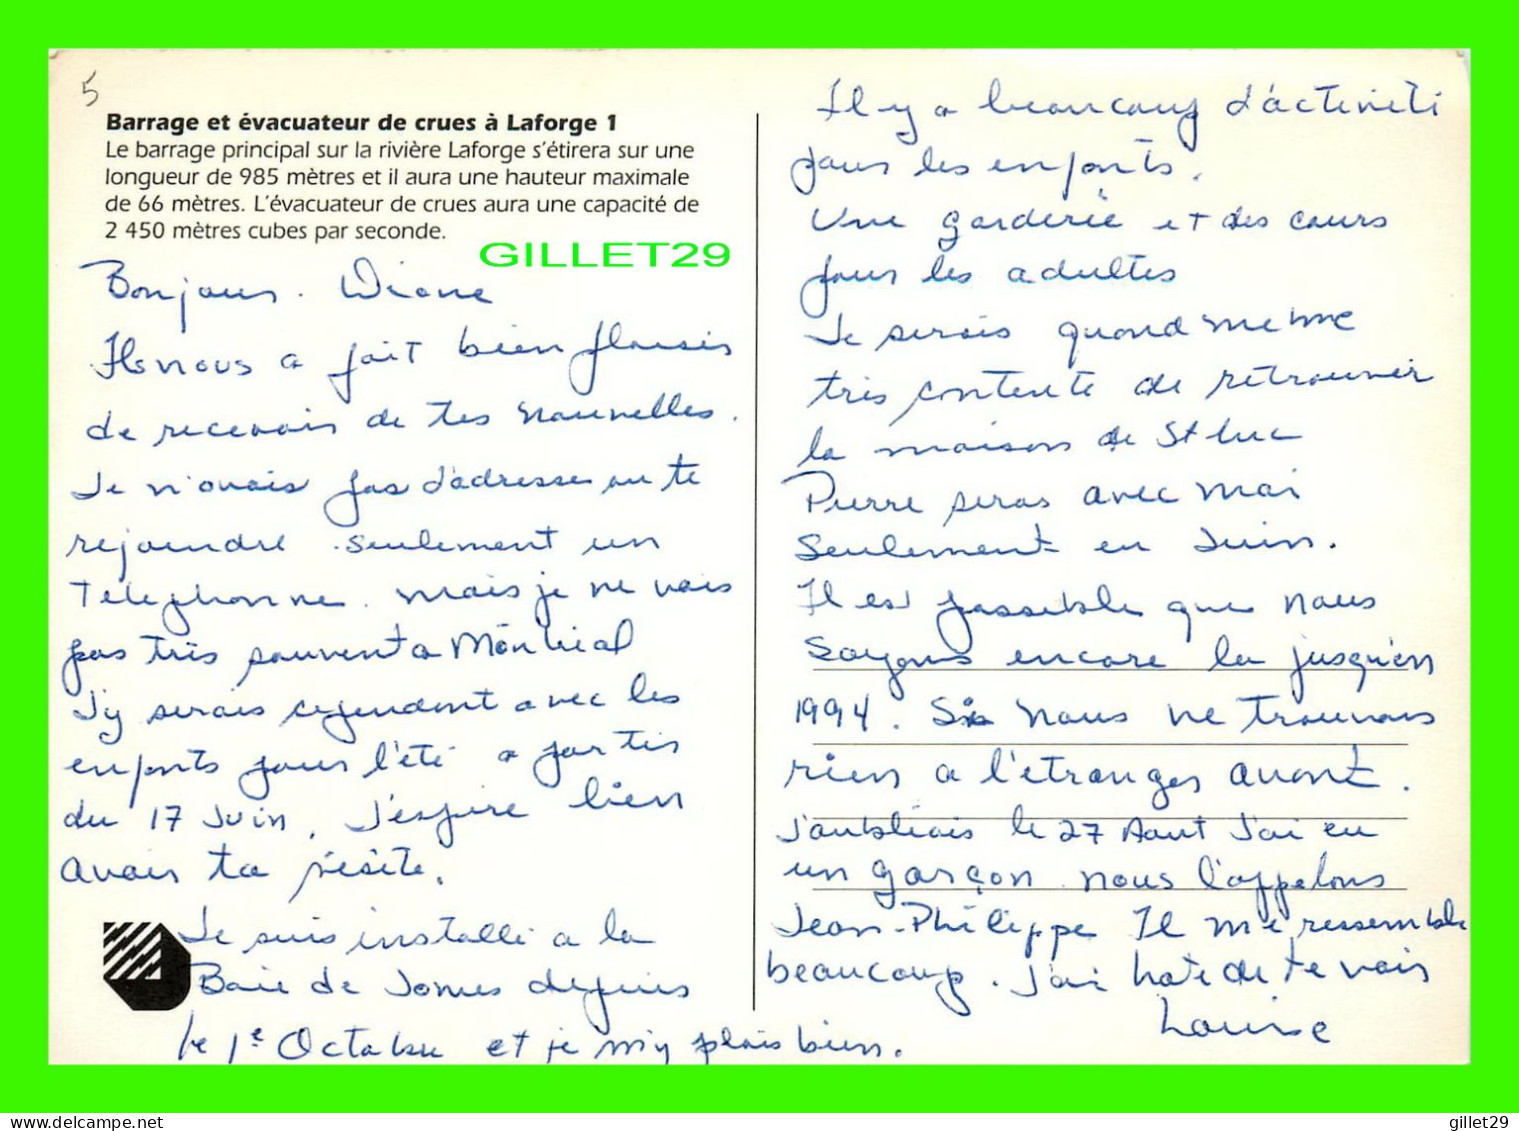 5
Barrage et évacuateur de crues à Laforge 1
Le barrage principal sur la rivière Laforge s'étirera sur une
longueur de 985 mètres et il aura une hauteur maximale
de 66 mètres. L'évacuateur de crues aura une capacité de
2 450 mètres cubes par seconde.
GILLET29
Bonjour. Diane
nous a fait bien plaisir
de recevoir de tes nouvelles.
Je n'avais pas d'adresse ou te
rejoindre. seulement un
Telephonne. mais je ne vais
pas très souvent a Montréal
J'y serais cependant avec les
enfants pour l'été a partir
du 17 Juin. J'espère bien
avoir ta visite.
Je suis installé a la
Baie de James depuis
le 1e Octobre et je m'y plais bien.
Il y a beaucoup d'activité
pour les enfants.
Une garderie et des cours
pour les adultes
Je serais quand meme
très contente de retrouver
la maison de St Luc
Pierre seras avec moi
Seulement en Juin.
Il est possible que nous
Soyons encore la jusqu'en
1994. Si nous ne trouvons
rien a l'étranger avant.
J'oubliais le 27 Aout J'ai eu
un garçon nous l'appelons
Jean-Philippe Il me ressemble
beaucoup. J'ai hate de te voir
Louise
gillet29